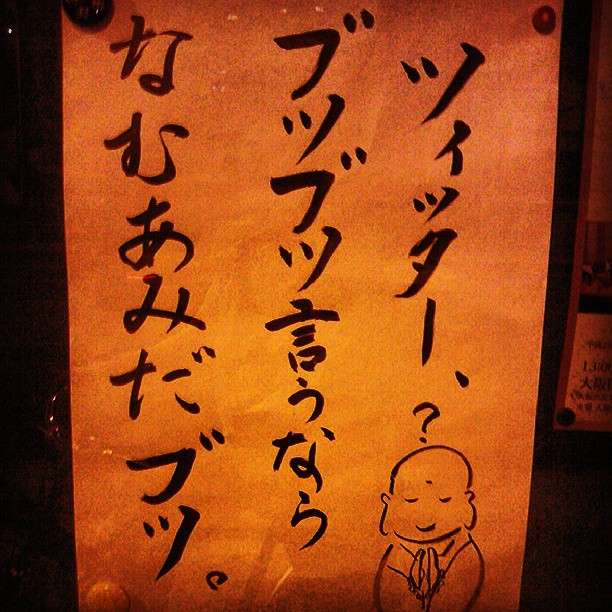 ツイッター、?
ブツブツ言うなら
なむあみだブツ。
13:0